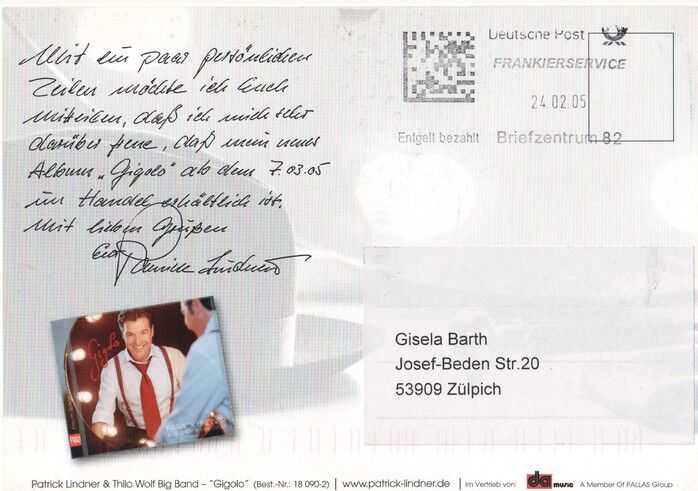 Mit ein paar persönlichen
Zeilen möchte ich Euch
mitteilen, daß ich mich sehr
darüber freue, daß mein neues
Album „Gigolo" ab dem 7.03.05
im Handel erhältlich ist.
Mit lieben Grüßen
Euer
Patrick Lindner
Deutsche Post
FRANKIERSERVICE
24.02.05
Entgelt bezahlt Briefzentrum 82
Gisela Barth
Josef-Beden Str.20
53909 Zülpich
Gigolo
PATRICK LINDNER
Patrick Lindner & Thilo Wolf Big Band – "Gigolo" (Best.-Nr.: 18 090-2) | www.patrick-lindner.de | Im Vertrieb von: da music A Member Of PALLAS Group